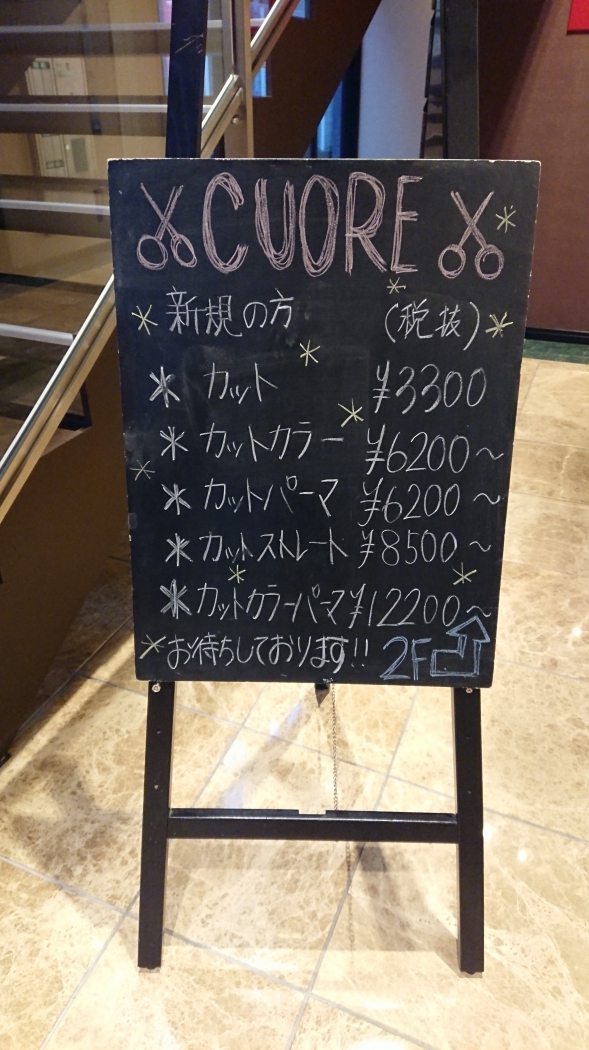 CUORE
新規の方 (税抜)
* カット ¥3300
* カットカラー ¥6200~
* カットパーマ ¥6200~
* カットストレート ¥8500~
* カットカラーパーマ ¥12200~
お待ちしております!! 2F